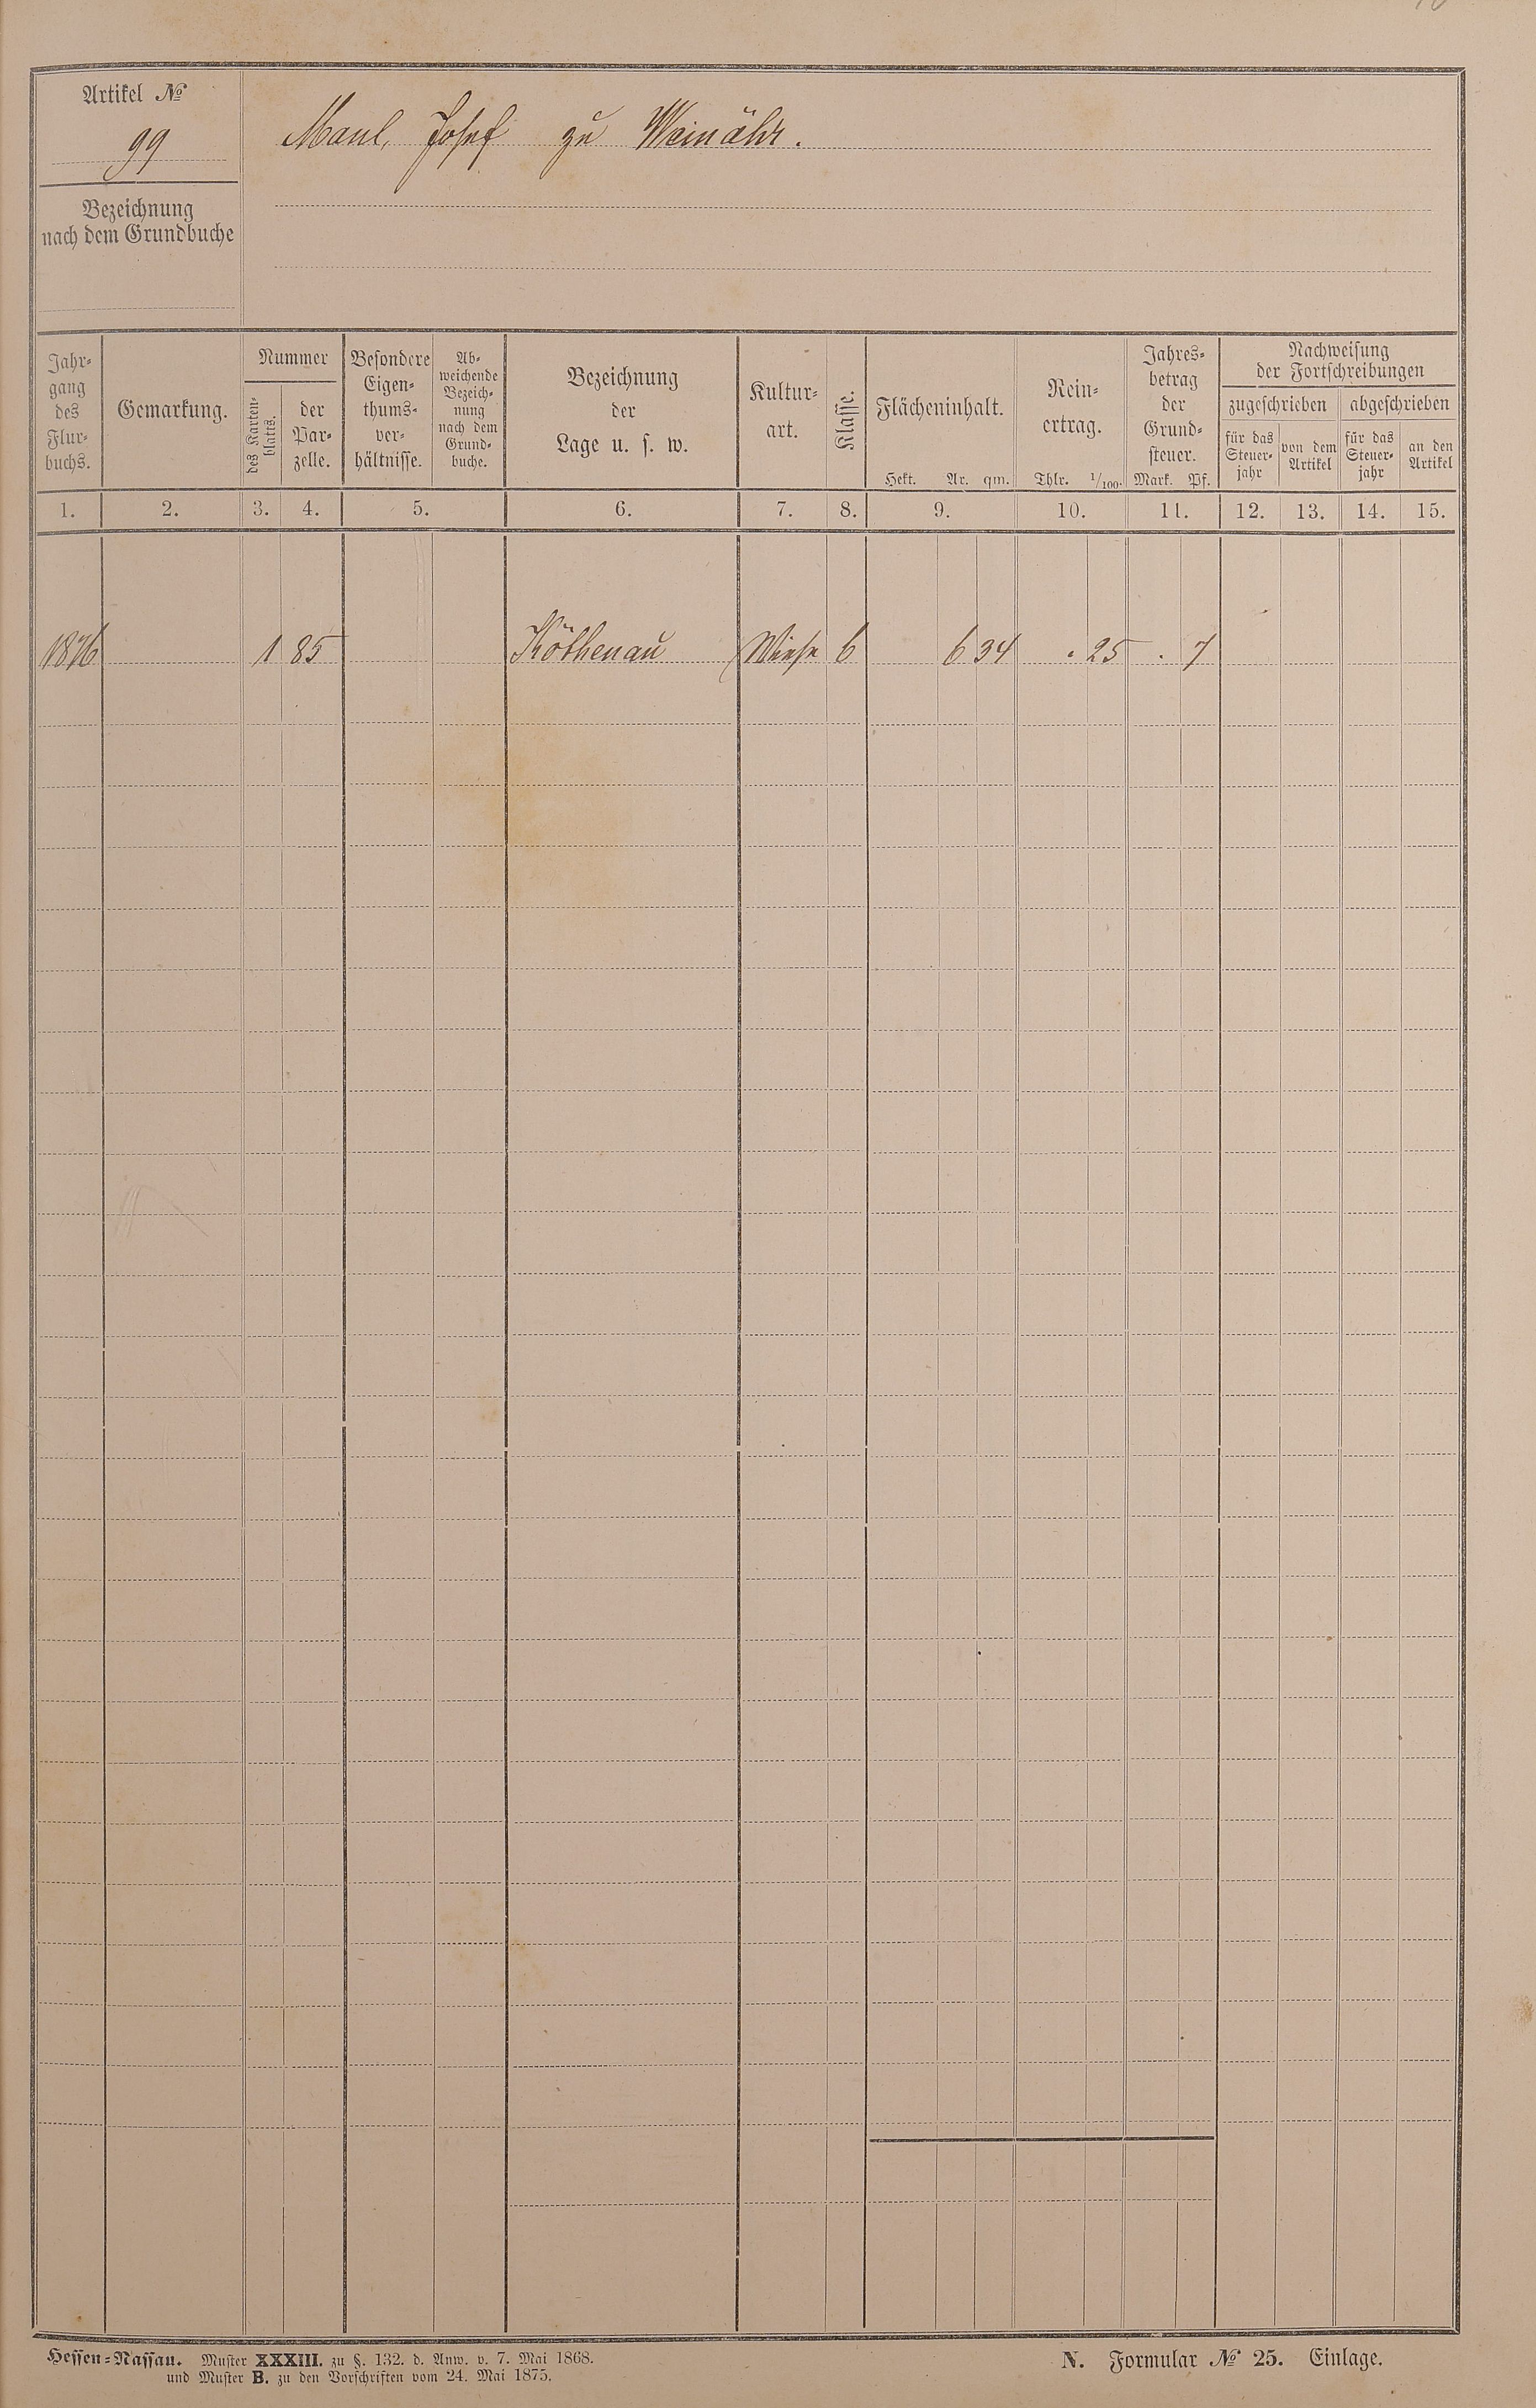 Artikel №
99
Maul, Josef zu Weinähr.
Bezeichnung
nach dem Grundbuche
Jahr-
gang
des
Flur-
buchs.
Gemarkung.
Nummer
des Karten-
blatts.
der
Par-
zelle.
Besondere
Eigen-
thums-
ver-
hältnisse.
Ab-
weichende
Bezeich-
nung
nach dem
Grund-
buche.
Bezeichnung
der
Lage u. s. w.
Kultur-
art.
Klasse.
Flächeninhalt.
Hekt. Ar. qm.
Rein-
ertrag.
Thlr. 1/100.
Jahres-
betrag
der
Grund-
steuer.
Mark. Pf.
Nachweisung
der Fortschreibungen
zugeschrieben abgeschrieben
für das
Steuer-
jahr
von dem
Artikel
für das
Steuer-
jahr
an den
Artikel
1. 2. 3. 4. 5. 6. 7. 8. 9. 10. 11. 12. 13. 14. 15.
1876 1 85 Köthenau Wiese 6 6 34 . 25 . 7
Hessen-Nassau. Muster XXXIII. zu §. 132. d. Anw. v. 7. Mai 1868.
und Muster B. zu den Vorschriften vom 24. Mai 1875.
N. Formular № 25. Einlage.